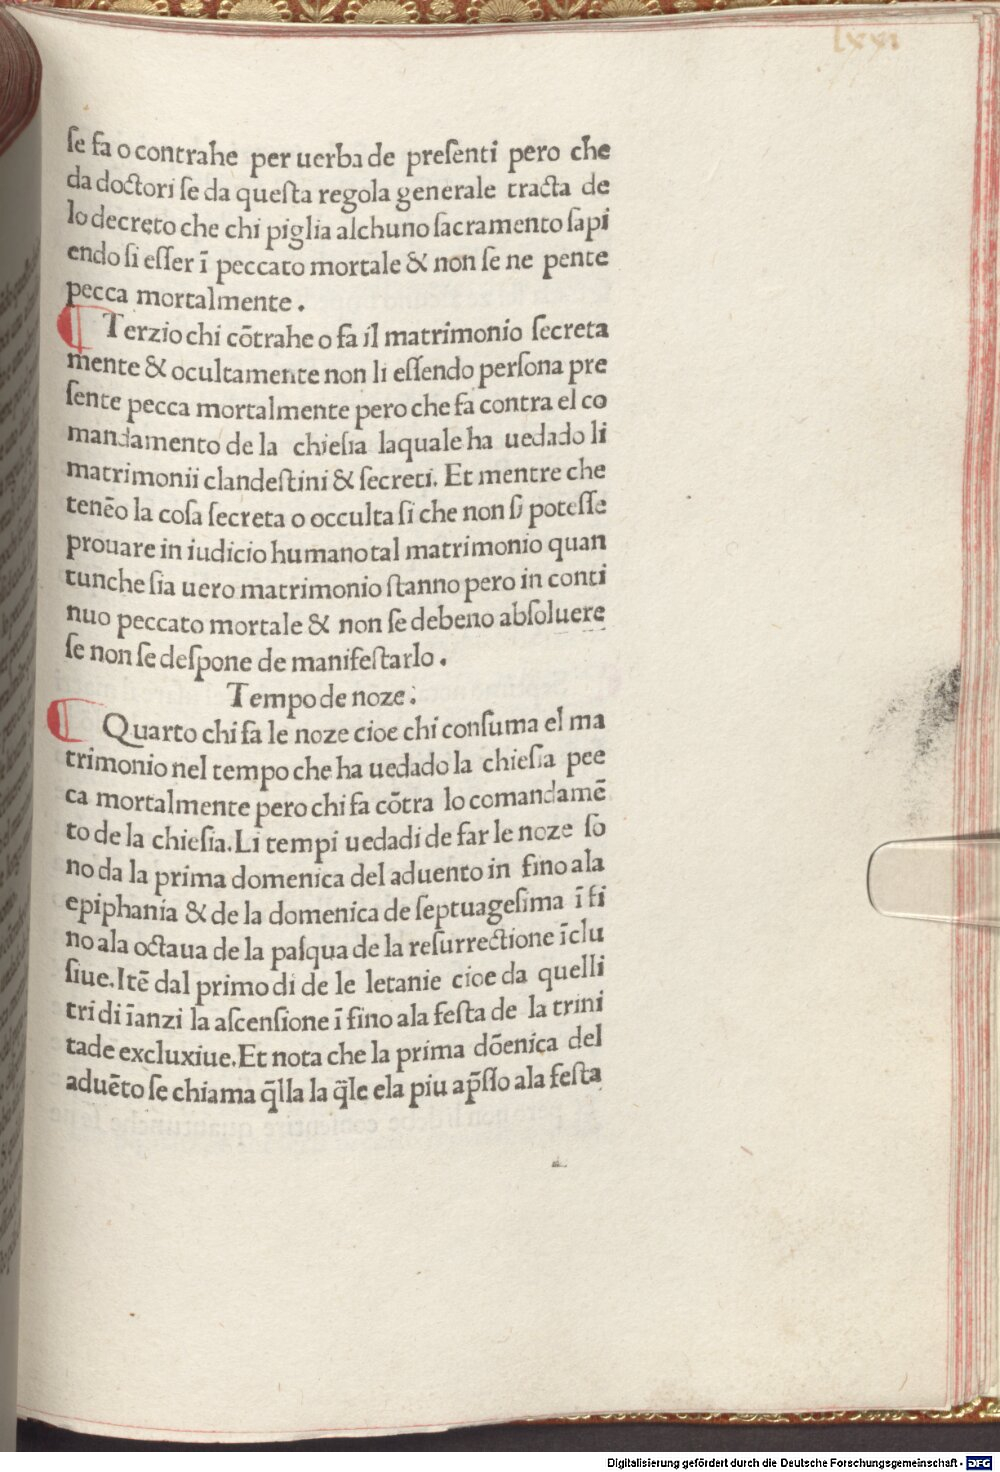 lxxi
ſe fa o contrahe per uerba de preſenti pero che
da doctori ſe da queſta regola generale tracta de
lo decreto che chi piglia alchuno ſacramento ſapi
endo ſi eſſer ī peccato mortale & non ſe ne pente
pecca mortalmente.
¶ Terzio chi cōtrahe o fa il matrimonio ſecreta
mente & ocultamente non li eſſendo perſona pre
ſente pecca mortalmente pero che fa contra el co
mandamento de la chieſia laquale ha uedado li
matrimonii clandeſtini & ſecreti. Et mentre che
tenēo la coſa ſecreta o occulta ſi che non ſi poteſſe
prouare in iudicio humano tal matrimonio quan
tunche ſia uero matrimonio ſtanno pero in conti
nuo peccato mortale & non ſe debeno abſoluere
ſe non ſe deſpone de manifeſtarlo.
Tempo de noze:
¶ Quarto chi fa le noze cioe chi conſuma el ma
trimonio nel tempo che ha uedado la chieſia pee
ca mortalmente pero chi fa cōtra lo comandamē
to de la chieſia. Li tempi uedadi de far le noze ſo
no da la prima domenica del aduento in fino ala
epiphania & de la domenica de ſeptuageſima ī fi
no ala octaua de la paſqua de la reſurrectione īclu
ſiue. Itē dal primo di de le letanie cioe da quelli
tri di īanzi la aſcenſione ī fino ala feſta de la trini
tade excluxiue. Et nota che la prima dōenica del
aduēto ſe chiama q̄lla la q̄le ela piu ap̄ſſo ala feſta
Digitalisierung gefördert durch die Deutsche Forschungsgemeinschaft - DFG